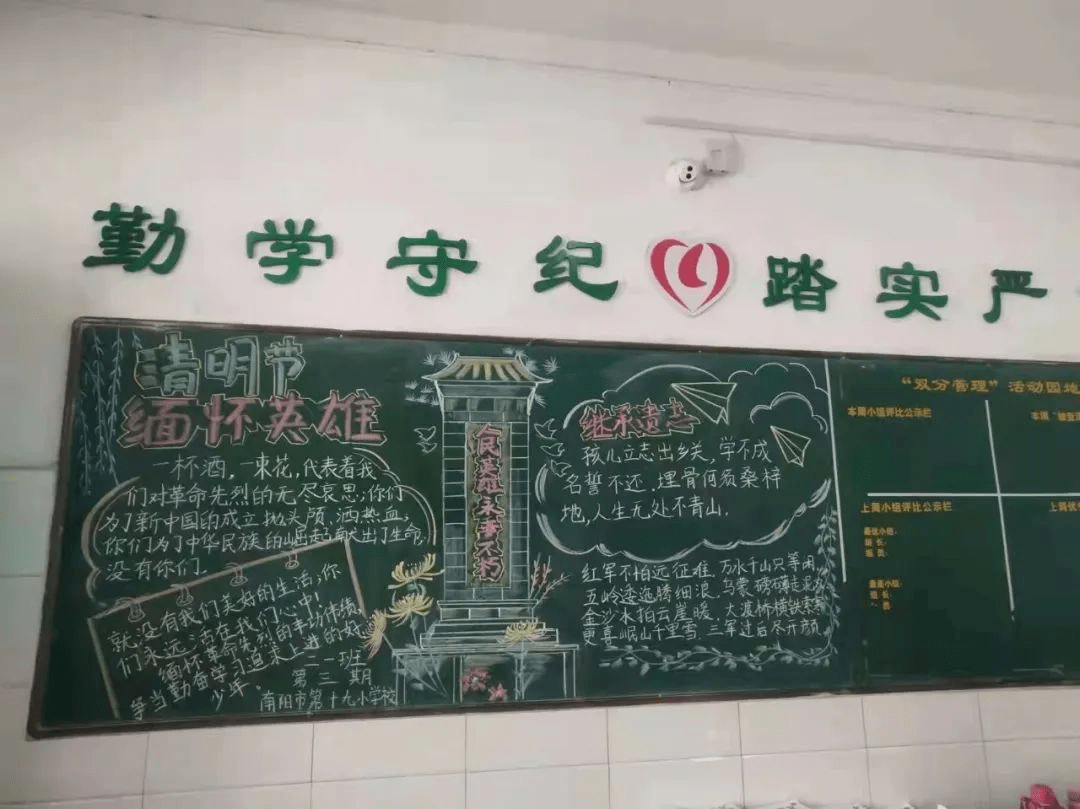 勤学守纪 踏实严
清明节
缅怀英雄
一杯酒，一束花，代表着我
们对革命先烈的无尽哀思；你们
为了新中国的成立抛头颅，洒热血，
你们为了中华民族的崛起献出了生命
没有你们，
就没有我们美好的生活；你
们永远活在我们心中！
缅怀革命先烈的丰功伟绩，
争当勤奋学习追求上进的好
少年。
三一班
第三期
南阳市第十九小学校
民英雄永垂不朽
继承遗志
孩儿立志出乡关，学不成
名誓不还，埋骨何须桑梓
地，人生无处不青山。
红军不怕远征难，万水千山只等闲
五岭逶迤腾细浪，乌蒙磅礴走泥丸
金沙水拍云崖暖，大渡桥横铁索寒
更喜岷山千里雪，三军过后尽开颜
“双分管理”活动园地
本周小组评比公示栏
本周
上周小组评比公示栏
最优小组：
组长：
组员：
最差小组：
组长：
员